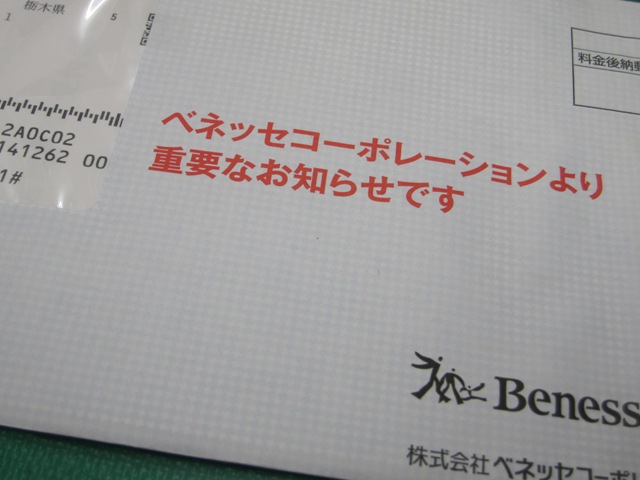 栃木県
1 5
料金後納郵
2A0C02
141262 00
1#
ベネッセコーポレーションより
重要なお知らせです
Beness
株式会社 ベネッセコーポレ